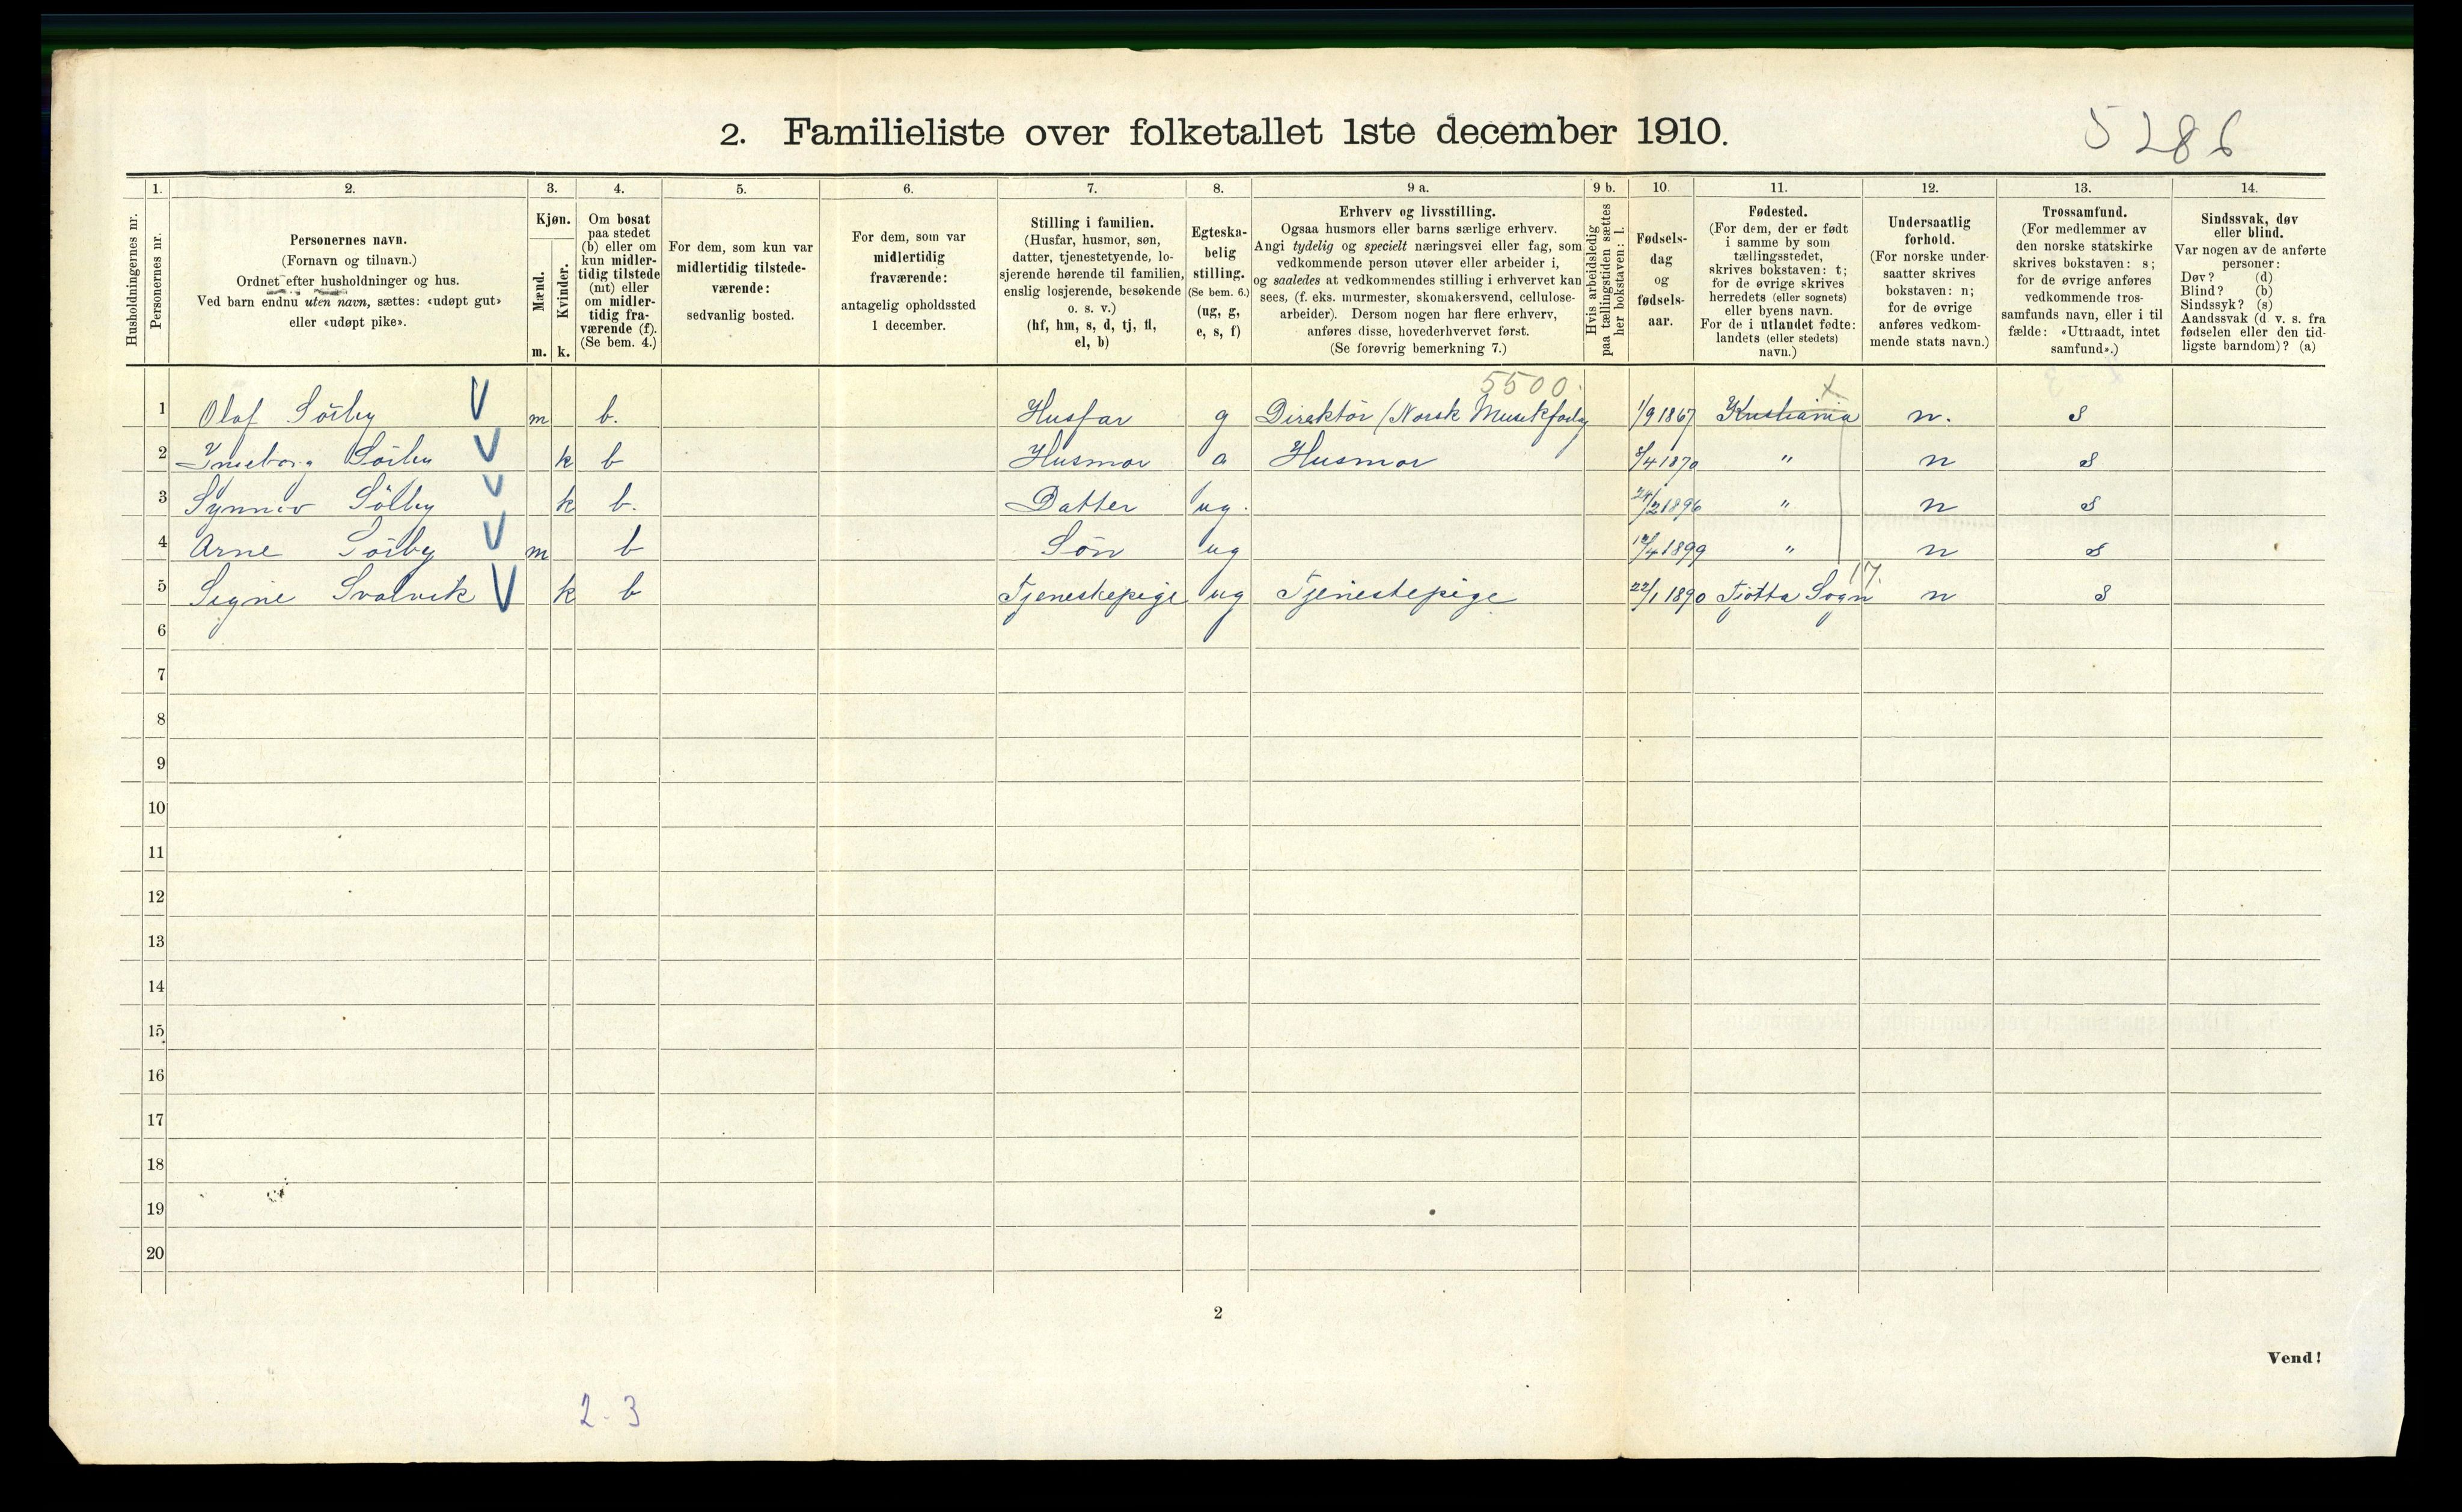 2. Familieliste over folketallet 1ste december 1910.
5286
1. 2. 3. 4. 5. 6. 7. 8. 9 a. 9 b. 10. 11. 12. 13. 14.
Husholdningernes nr.
Personernes nr.
Personernes navn.
(Fornavn og tilnavn.)
Ordnet efter husholdninger og hus.
Ved barn endnu uten navn, sættes: «udøpt gut»
eller «udøpt pike».
Kjøn.
Mænd.
Kvinder.
m. k.
Om bosat
paa stedet
(b) eller om
kun midler-
tidig tilstede
(mt) eller
om midler-
tidig fra-
værende (f).
(Se bem. 4.)
For dem, som kun var
midlertidig tilstede-
værende:
sedvanlig bosted.
For dem, som var
midlertidig
fraværende:
antagelig opholdssted
1 december.
Stilling i familien.
(Husfar, husmor, søn,
datter, tjenestetyende, lo-
sjerende hørende til familien,
enslig losjerende, besøkende
o. s. v.)
(hf, hm, s, d, tj, fl,
el, b)
Egteska-
belig
stilling.
(Se bem. 6.)
(ug, g,
e, s, f)
Erhverv og livsstilling.
Ogsaa husmors eller barns særlige erhverv.
Angi tydelig og specielt næringsvei eller fag, som
vedkommende person utøver eller arbeider i,
og saaledes at vedkommendes stilling i erhvervet kan
sees, (f. eks. murmester, skomakersvend, cellulose-
arbeider). Dersom nogen har flere erhverv,
anføres disse, hovederhvervet først.
(Se forøvrig bemerkning 7.)
Hvis arbeidsledig
paa tællingstiden sættes
her bokstaven: l.
Fødsels-
dag
og
fødsels-
aar.
Fødested.
(For dem, der er født
i samme by som
tællingsstedet,
skrives bokstaven: t;
for de øvrige skrives
herredets (eller sognets)
eller byens navn.
For de i utlandet fødte:
landets (eller stedets)
navn.)
Undersaatlig
forhold.
(For norske under-
saatter skrives
bokstaven: n;
for de øvrige
anføres vedkom-
mende stats navn.)
Trossamfund.
(For medlemmer av
den norske statskirke
skrives bokstaven: s;
for de øvrige anføres
vedkommende tros-
samfunds navn, eller i til
fælde: «Uttraadt, intet
samfund».)
Sindssvak, døv
eller blind.
Var nogen av de anførte
personer:
Døv? (d)
Blind? (b)
Sindssyk? (s)
Aandssvak (d. v. s. fra
fødselen eller den tid-
ligste barndom)? (a)
5500. x
1 Olaf Sörby V m b. Husfar g Direktör (Norsk Musikforlag 1/9 1867 Kristiania n. S
2 Ingeborg Sörby V k b Husmor Husmor /4 1870 " n S
3 Synnöv Sölby V k b. Datter ug. 24/2 1896 " n S
4 Arne Sörby V m b Sön ug /4 1899 " n S
17.
5 Signe Svalvik V k b Tjenestepige ug Tjenestepige 22/1 1890 Tjötta Sogn n S
6
7
8
9
10
11
12
13
14
15
16
17
18
19
20
2
Vend!
2-3